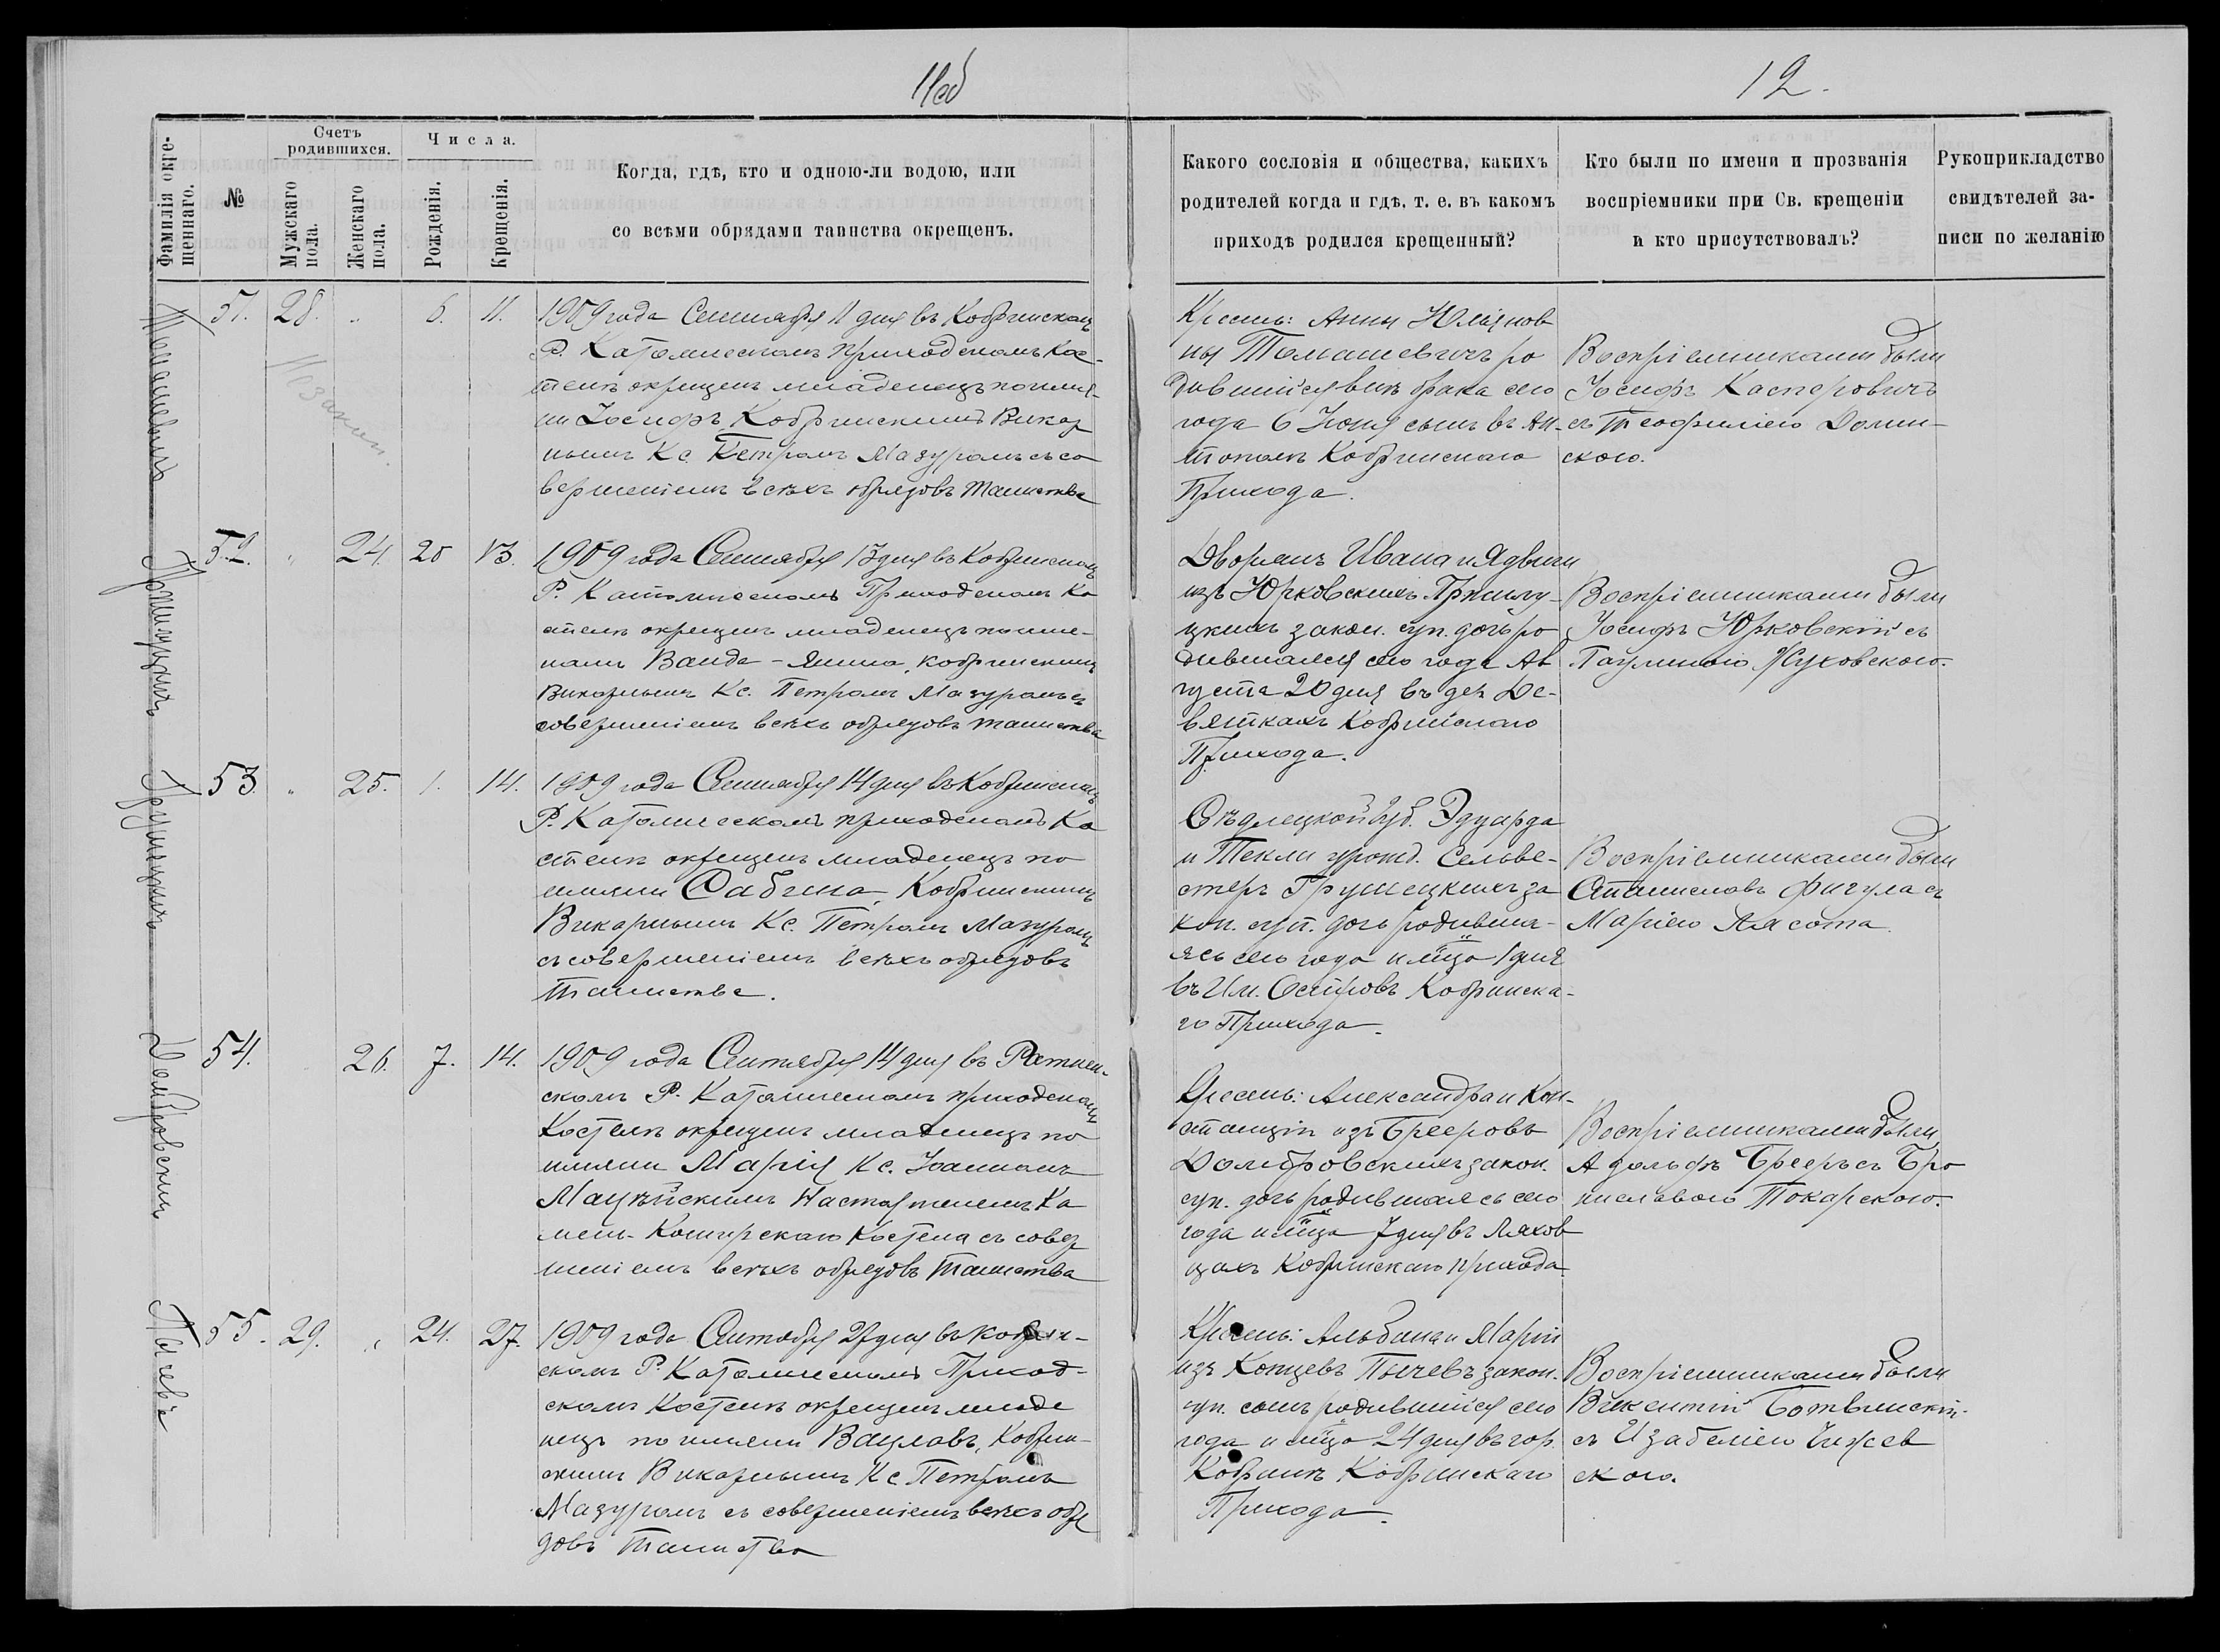 11об
12.
Фамилія окре-
щеннаго.
№
Счетъ
родившихся.
Мужскаго
пола.
Женскаго
пола.
Числа.
Рожденія.
Крещенія.
Когда, гдѣ, кто и одною-ли водою, или
со всѣми обрядами таинства окрещенъ.
Какого сословія и общества, какихъ
родителей когда и гдѣ, т. е. въ какомъ
приходѣ родился крещенный?
Кто были по имени и прозванія
воспріемники при Св. крещеніи
и кто присутствовалъ?
Рукоприкладство
свидѣтелей за-
писи по желанію
Томашевичъ
51. 28. " 6. 11.
1909 года Сентября 11 дня въ Кобринскомъ
Р. Католическомъ Приходскомъ Кос-
телѣ окрещенъ младенецъ по име-
ни Іосифъ, Кобринскимъ Викар
нымъ Кс. Петромъ Мазуромъ съ со
вершеніемъ всѣхъ обрядовъ Таинства
Кресть: Анны Юліянов
ны Томашевичъ ро
дившійся внѣ брака сего
года 6 Іюня сынъ въ Ан-
тополѣ Кобринскаго
Прихода.
Воспріемниками были
Іосифъ Касперовичъ
съ Теофилією Домин-
скою.
52. " 24. 20 13.
1909 года Сентября 13 дня въ Кобринскомъ
Р. Католическомъ Приходскомъ Ко
стелѣ окрещенъ младенецъ по име-
намъ Ванда-Янина, Кобринскимъ
Викарнымъ Кс. Петромъ Мазуромъ съ
совершеніемъ всѣхъ обрядовъ таинства
Дворянъ Ивана и Ядвиги
изъ Юрковскихъ
закон. суп. дочь ро
дившаяся сего года Ав
густа 20 дня въ дер. Де-
вяткахъ Кобринскаго
Прихода.
Воспріемниками были
Іосифъ Юрковскій съ
Паулиною Жуховскою.
Грушецкихъ
53. " 25. 1. 14.
1909 года Сентября 14 дня въ Кобринскомъ
Р. Католическомъ приходскомъ Ко
стелѣ окрещенъ младенецъ по
имени Сабина, Кобринскимъ
Викарнымъ Кс. Петромъ Мазуромъ
съ совершеніемъ всѣхъ обрядовъ
Таинства.
Сѣдлецкой губ. Эдуарда
и Текли урожд. Сельве-
стеръ Грушецкихъ за
кон. суп. дочь родивша-
ясь сего года и мца 1 дня
въ Им. Островъ Кобринска-
го Прихода.
Воспріемниками были
Станиславъ Фигула съ
Маріею Лясота.
Домбровскихъ
54. 26. 7. 14.
1909 года Сентября 14 дня въ Ратнен-
скомъ Р. Католическомъ приходскомъ
Костелѣ окрещенъ младенецъ по
имени Марія Кс. Іоанномъ
Мацѣйскимъ Настоятелемъ Ка
мень-Коширскаго Костела съ совер
шеніемъ всѣхъ обрядовъ Таинства
Кресть: Александра и Кон-
станціи изъ Брееровъ
Домбровскихъ закон.
суп. дочь родившаясь сего
года и мца 7 дня въ Ляхов
цахъ Кобринскаго прихода
Воспріемниками были
Адольфъ Брееръ съ Бро
ниславою Токарскою.
Пычевъ
55. 29. " 24. 27.
1909 года Сентября 27 дня въ Кобрин-
скомъ Р. Католическомъ Приход-
скомъ Костелѣ окрещенъ младе
нецъ по имени Вацлавъ, Кобрин-
скимъ Викарнымъ Кс. Петромъ
Мазуромъ съ совершеніемъ всѣхъ обря
довъ Таинства
Кресть: Альбина и Маріи
изъ Концевъ Пычевъ закон.
суп. сынъ родившійся сего
года и мца 24 дня въ гор.
Кобринѣ Кобринскаго
Прихода.
Воспріемниками были
Викентій Ботвинскій
съ Изабелією Чижев
скою.